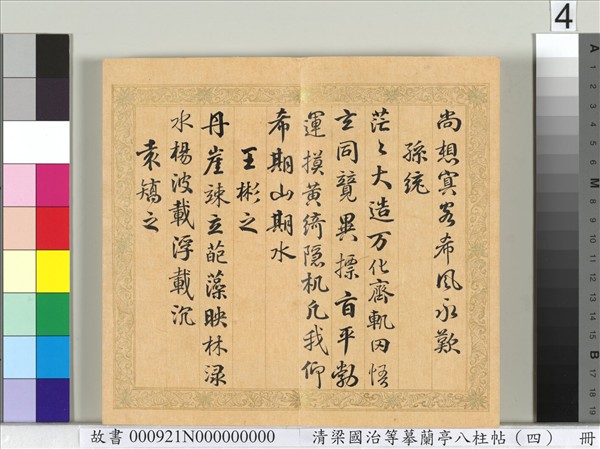 4
尚想冥客希風永歎
孫統
茫〻大造万化齊軌囙悟
玄同競異摽旨平勃
運摸黃綺隐机凡我仰
希期山期水
王彬之
丹崖竦立葩藻映林淥
水楊波載浮載沉
袁矯之
故書 000921N000000000 清梁國治等摹蘭亭八柱帖（四） 冊